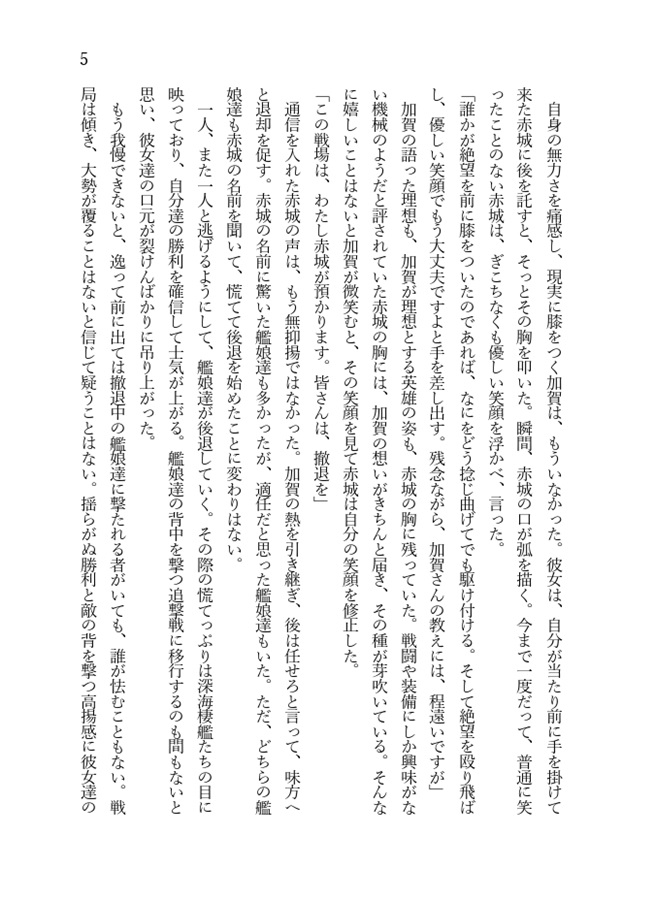 5
自身の無力さを痛感し、現実に膝をつく加賀は、もういなかった。彼女は、自分が当たり前に手を掛けて
来た赤城に後を託すと、そっとその胸を叩いた。瞬間、赤城の口が弧を描く。今まで一度だって、普通に笑
ったことのない赤城は、ぎこちなくも優しい笑顔を浮かべ、言った。
「誰かが絶望を前に膝をついたのであれば、なにをどう捻じ曲げてでも駆け付ける。そして絶望を殴り飛ば
し、優しい笑顔でもう大丈夫ですよと手を差し出す。残念ながら、加賀さんの教えには、程遠いですが」
加賀の語った理想も、加賀が理想とする英雄の姿も、赤城の胸に残っていた。戦闘や装備にしか興味がな
い機械のようだと評されていた赤城の胸には、加賀の想いがきちんと届き、その種が芽吹いている。そんな
に嬉しいことはないと加賀が微笑むと、その笑顔を見て赤城は自分の笑顔を修正した。
「この戦場は、わたし赤城が預かります。皆さんは、撤退を」
通信を入れた赤城の声は、もう無抑揚ではなかった。加賀の熱を引き継ぎ、後は任せろと言って、味方へ
と退却を促す。赤城の名前に驚いた艦娘達も多かったが、適任だと思った艦娘達もいた。ただ、どちらの艦
娘達も赤城の名前を聞いて、慌てて後退を始めたことに変わりはない。
一人、また一人と逃げるようにして、艦娘達が後退していく。その際の慌てっぷりは深海棲艦たちの目に
映っており、自分達の勝利を確信して士気が上がる。艦娘達の背中を撃つ追撃戦に移行するのも間もないと
思い、彼女達の口元が裂けんばかりに吊り上がった。
もう我慢できないと、逸って前に出ては撤退中の艦娘達に撃たれる者がいても、誰が怯むこともない。戦
局は傾き、大勢が覆ることはないと信じて疑うことはない。揺らがぬ勝利と敵の背を撃つ高揚感に彼女達の